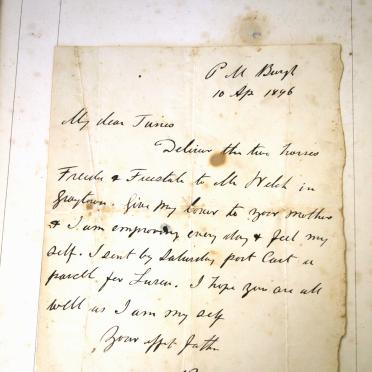 P M Burgh
10 Apr 1896
My dear
Deliver the two horses
& Freestate to Mr Welch in
Greytown. Give my love to your mother
& I am emproving every day & feel my
self. I sent by Saturday post Cart a
parcell for . I hope you are all
well as I am my self
Your afft father